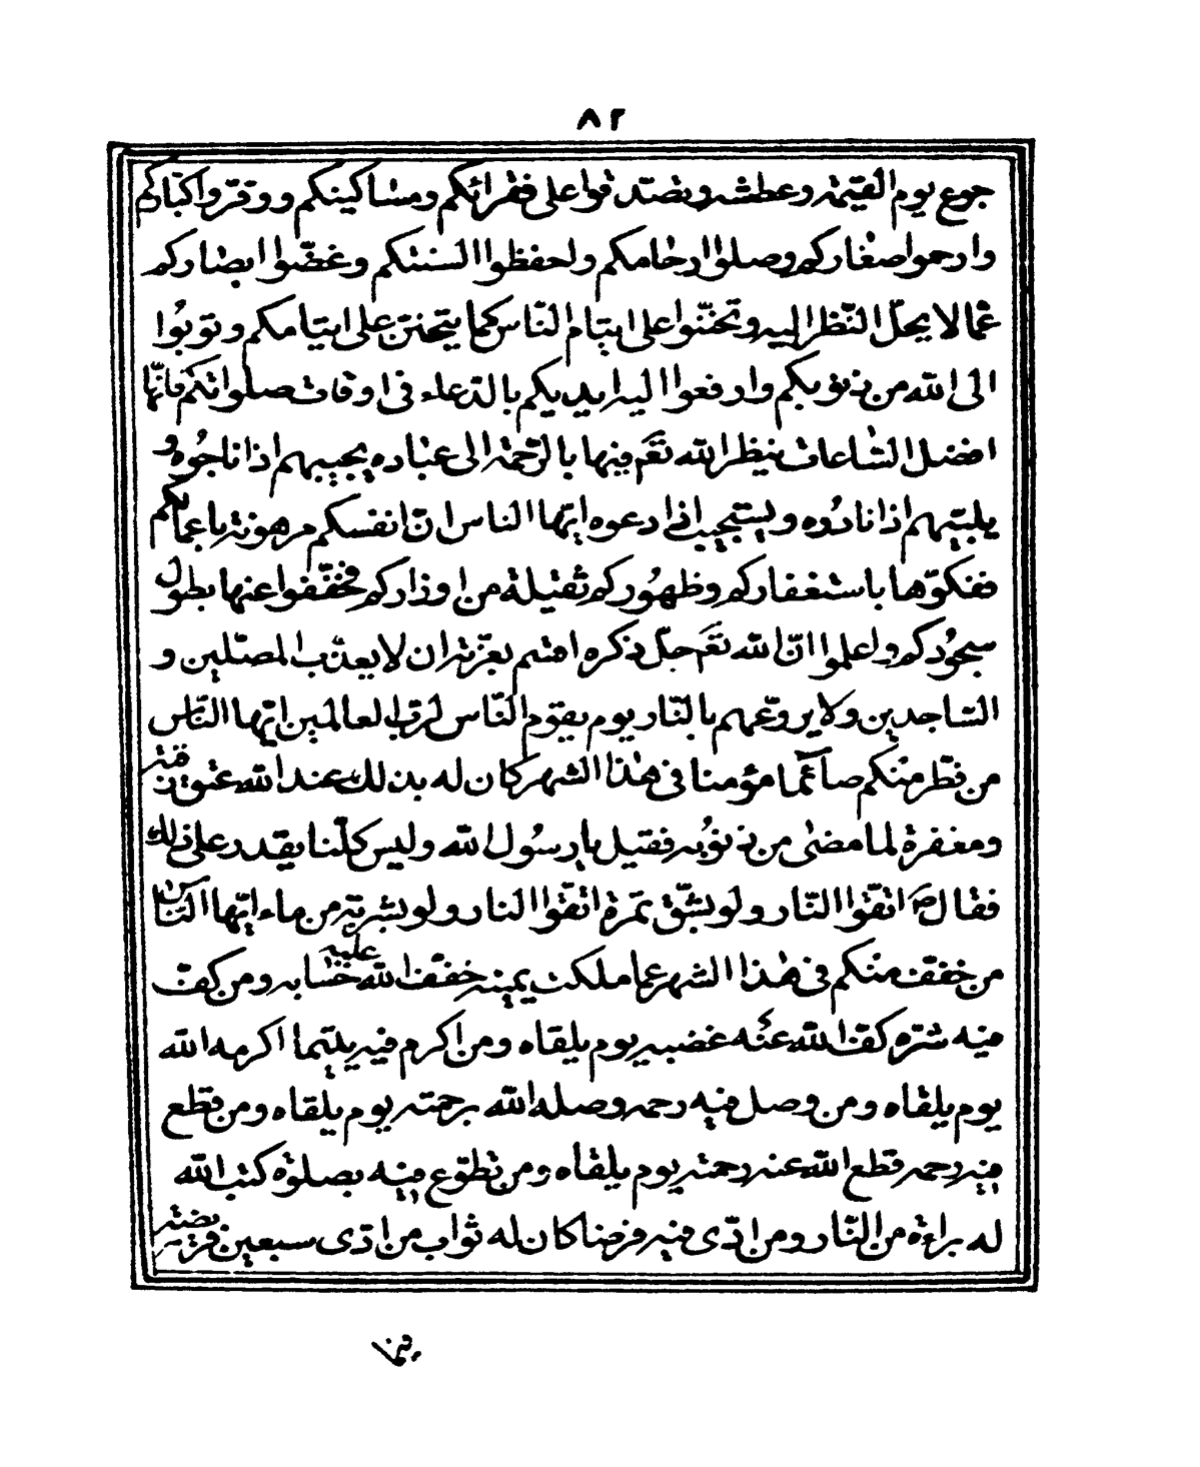 ٨٢
جوع يوم القيٰمة وعطشه وتصدّقوا على فقرائكم ومساكينكم ووقّروا كباركم
وارحموا صغاركم وصلوا ارحامكم واحفظوا السنتكم وغضّوا ابصاركم
عمّا لا يحلّ النّظر اليه وتحنّنوا على ايتام النّاس كما يتحنّن على ايتامكم وتوبُوا
الى الله من ذنوبكم وارفعوا اليه ايديكم بالدّعاء فى اوقات صلواتكم فانّها
افضل السّاعات ينظر الله تعَم فيها بالرّحمة الى عباده يجيبهم اذا ناجُوه و
يلبّيهم اذا نادُوه ويستجيب اذا دعوه ايّها الناس انّ انفسكم مرهونة باعمالكم
ففكّوها باستغفاركم وظهُوركم ثقيلة من اوزاركم فخفّفوا عنها بطول
سجُودكم واعلموا انّ الله تعَم جلّ ذكره اقسم بعزّته ان لا يعذّب المصلّين و
السّاجدين ولا يروّعهم بالنّار يوم يقوم النّاس لربّ العالمين ايّها النّاس
من فطّر منكم صآئما مؤمنا فى هٰذا الشهر كان له بذلك عند الله عتق رقبة
ومغفرة لما مضىٰ من ذنوُبه فقيل يا رسُول الله وليس كلّنا يقدر على ذلك
فقال ص اتّقوا النّار ولو بشقّ تمرة اتّقوا النار ولو بشربة من ماء ايّها النّاس
من خفّف منكم فى هٰذا الشهر عما ملكت يمينه خفّف الله عليه حسابه ومن كفّ
فيه شرّه كفّ الله عنُه غضبه يوم يلقاه ومن اكرم فيه يتيما اكرمه الله
يوم يلقاه ومن وصل فيه رحمه وصله الله برحمته يوم يلقاه ومن قطع
فيه رحمه قطع الله عنه رحمته يوم يلقاه ومن تطوّع فيه بصلوٰة كتب الله
له براءة من النّار ومن ادّى فيه فرضا كان له ثواب من ادّى سبعين فريضة
فيما